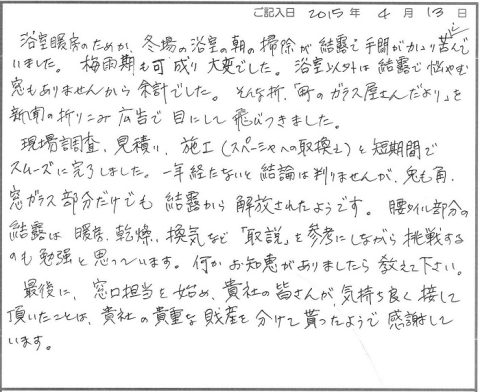 ご記入日 2015年 4月 13日
浴室暖房のためか、冬場の浴室の朝の掃除が結露で手間がかかり苦んで
いました。梅雨期も可成り大変でした。浴室以外は結露で悩やむ
窓もありませんから余計でした。そんな折、「町のガラス屋さんだより」を
新聞の折りこみ広告で目にして飛びつきました。
現場調査、見積り、施工(スペーシャへの取換え)と短期間で
スムーズに完了しました。一年経たないと結論は判りませんが、兎も角、
窓ガラス部分だけでも結露から解放されたようです。腰タイル部分の
結露は暖房、乾燥、換気など「取説」を参考にしながら挑戦する
のも勉強と思っています。何かお知恵がありましたら教えて下さい。
最後に、窓口担当を始め、貴社の皆さんが、気持ち良く接して
頂いたことは、貴社の貴重な財産を分けて貰ったようで感謝して
います。